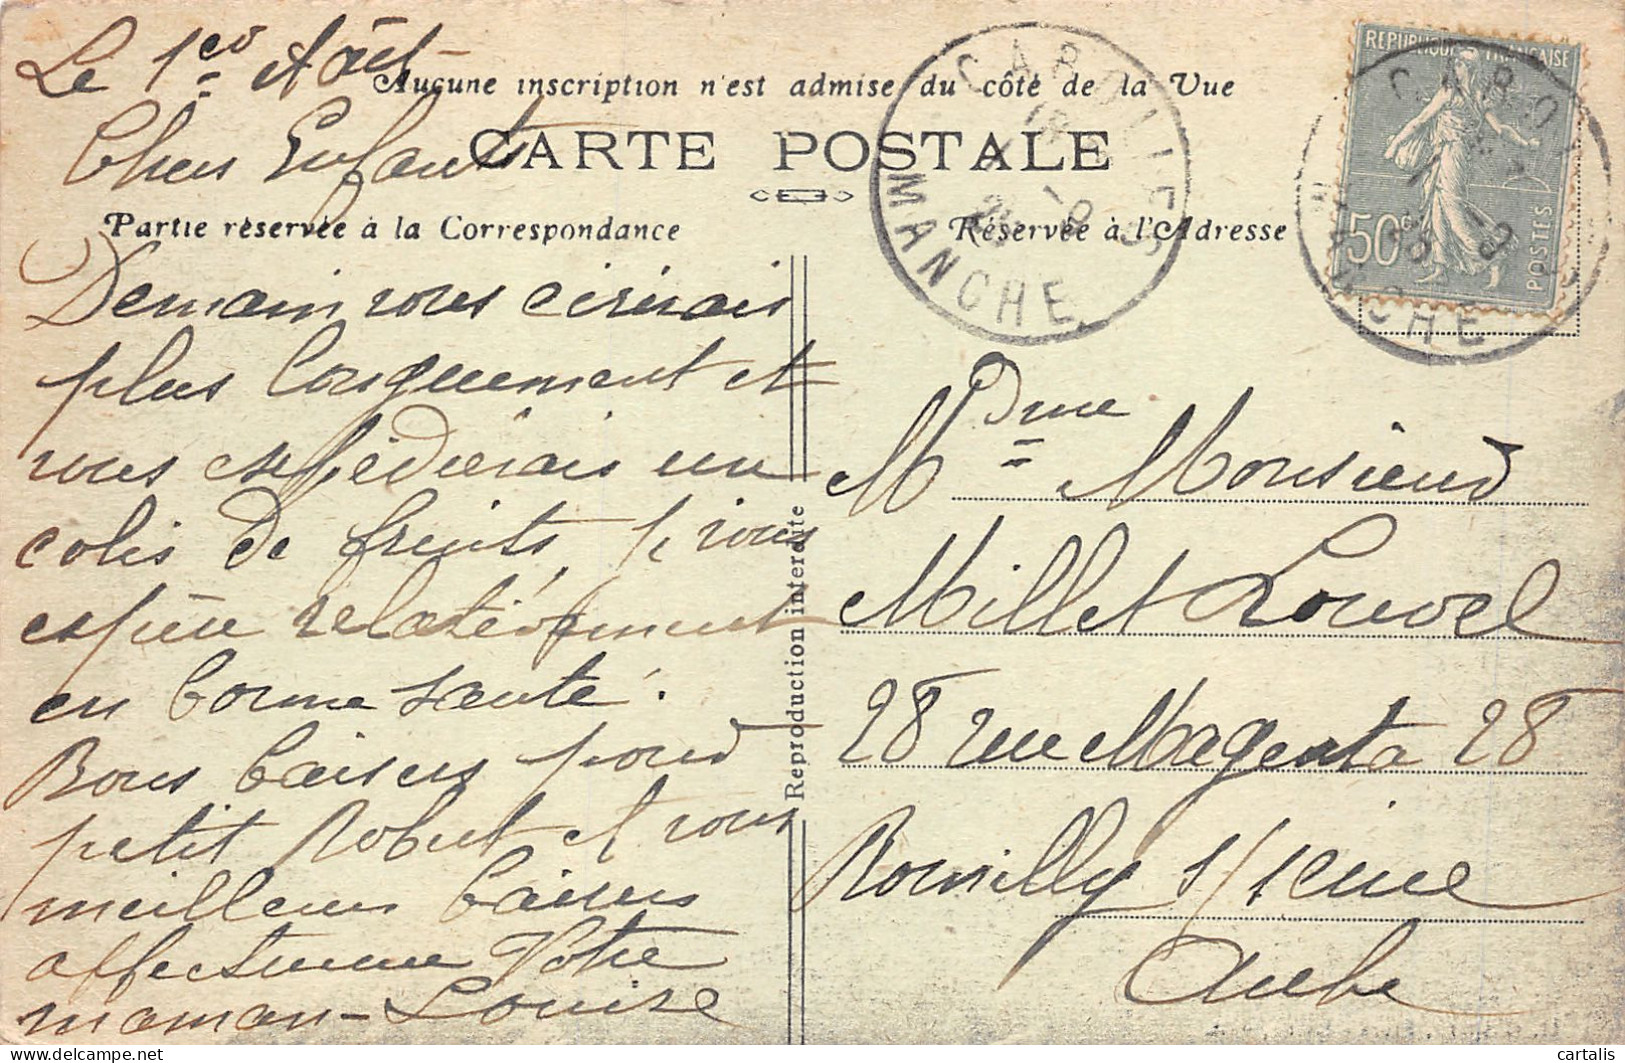 Le 1er Août
Aucune inscription n'est admise du côté de la Vue
Chers Enfants
CARTE POSTALE
Partie réservée à la Correspondance
Demain vous écrirais
plus longuement et
vous expédierais un
colis de fruits, je vous
espère relativement
en bonne santé.
Bons baisers pour
petit Robert et vous
meilleurs baisers
affectueux Votre
maman - Louise
Reproduction interdite
Réservée à l'Adresse
CAROLLES
MANCHE
REPUBLIQUE FRANÇAISE
50c
POSTES
CAROLLES
MANCHE
Mdme Monsieur
Millet Louvel
28 rue Magenta 28
Romilly s/ seine
Aube
cartalis